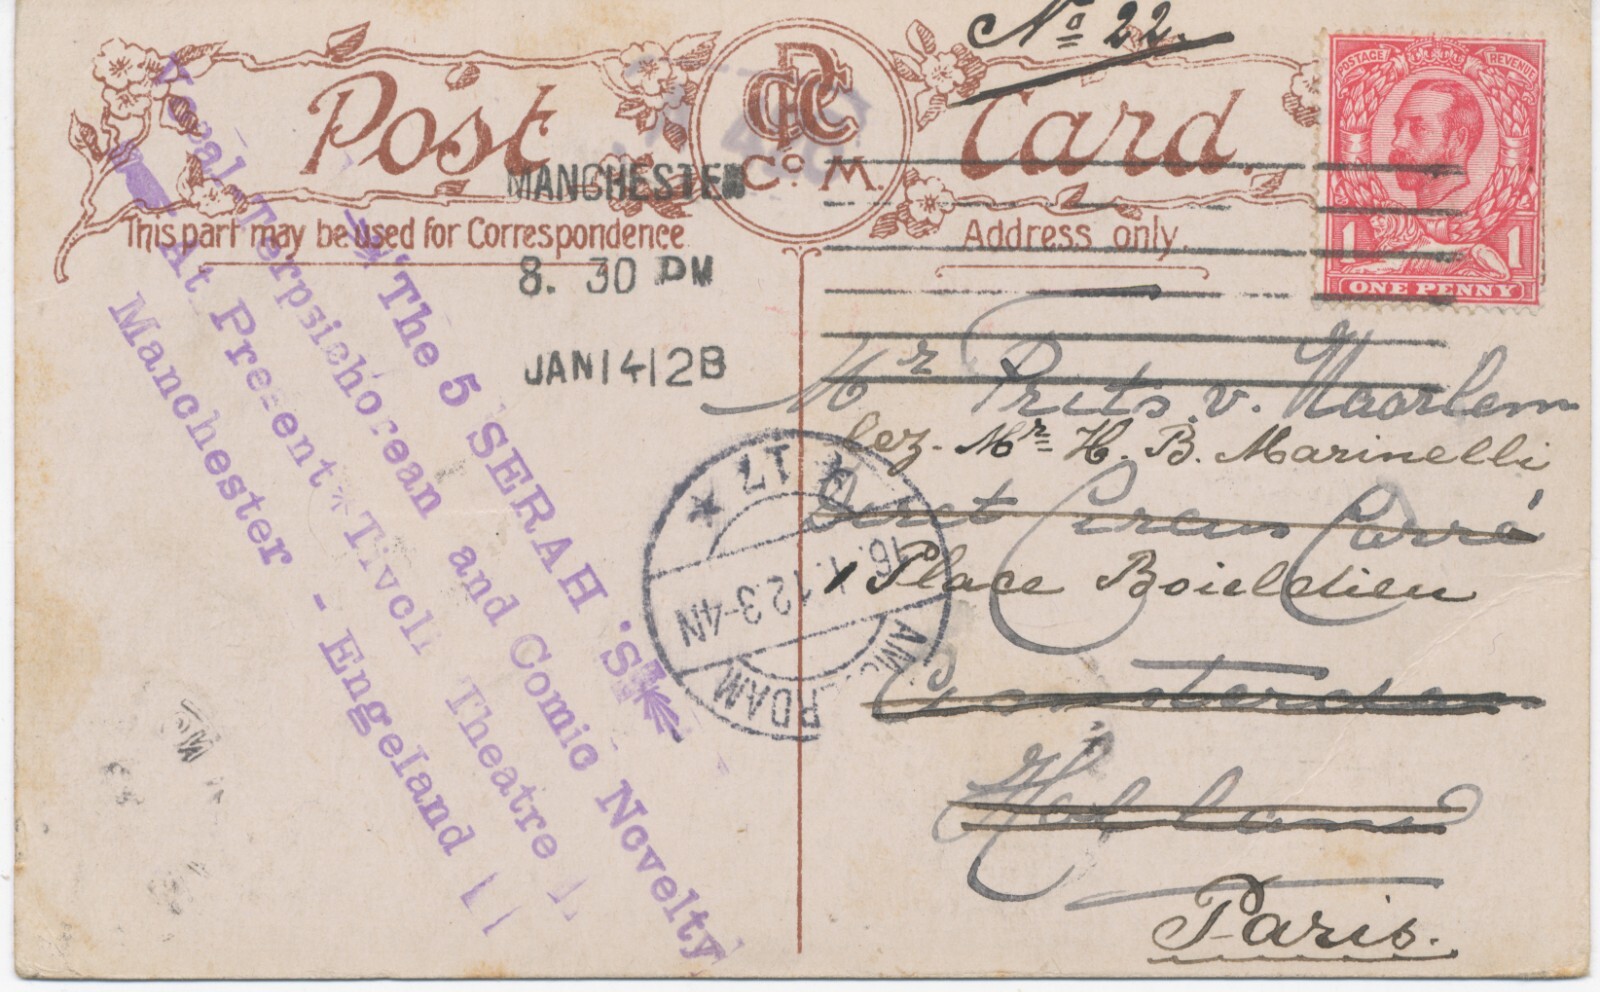 No 22.
Post Card
CPCC
Co M.
MANCHESTER
8. 30 PM
JAN 14 12B
This part may be used for Correspondence
Address only.
POSTAGE REVENUE
1 1
ONE PENNY
"The 5 SERAH 'S"
Vocal Terpsichorean and Comic Novelty
At Present Tivoli Theatre
Manchester - Engeland
Mr Frits v. Haarlem
bez. Mr H. B. Marinelli
Circus Carré
Place Boieldieu
Amsterdam
Holland
Paris.
17
12 3-4N
AMSTERDAM